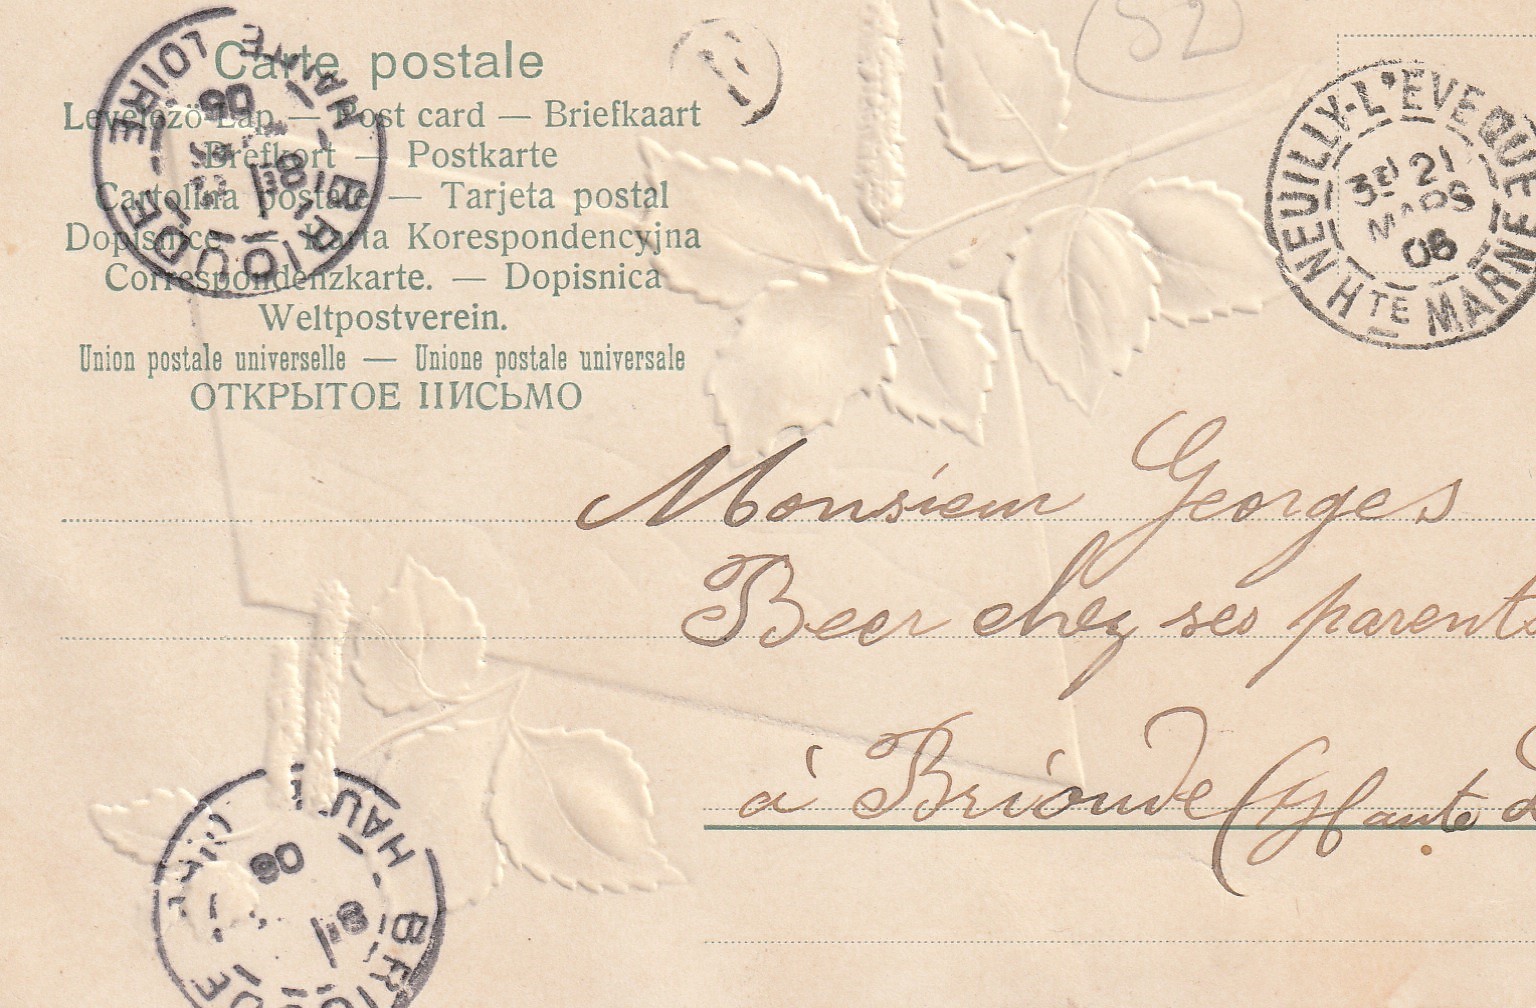 Carte postale
Levelözö-Lap — Post card — Briefkaart
Brefkort — Postkarte
Cartolina postale — Tarjeta postal
Dopisnice — Karta Korespondencyjna
Correspondenzkarte. — Dopisnica
Weltpostverein.
Union postale universelle — Unione postale universale
ОТКРЫТОЕ ПИСЬМО
52
NEUILLY-L'EVEQUE
3E 21
MARS
06
HTE MARNE
BRIOUDE
HAUTE LOIRE
8E
06
Monsieur Georges
Beer chez ses parents
à Brioude (Haute
BRIOUDE
HAUT
8E
06